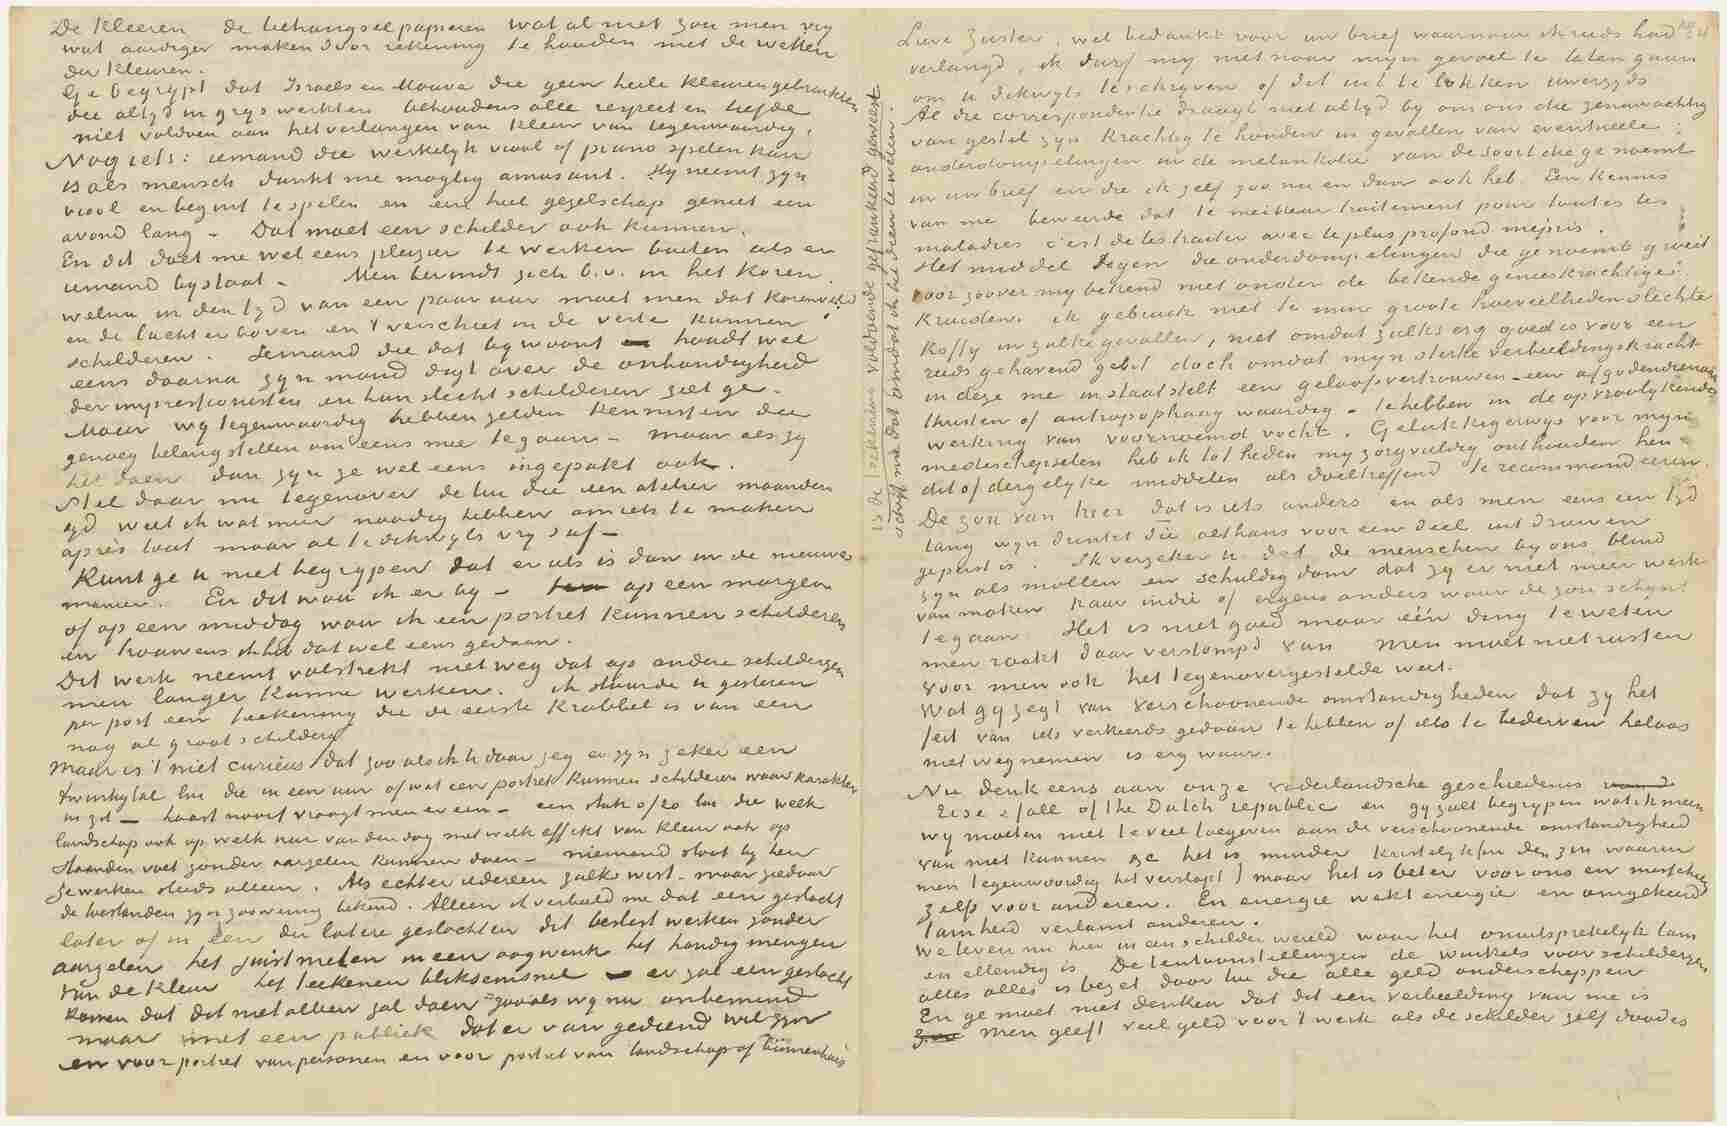 De kleeren de behangselpapieren wat al niet zou men vrij
wat aardiger maken door rekening te houden met de wetten
der kleuren.
Ge begrijpt dat Israels en Mauve die geen heele kleuren gebruikten
die altijd in grijs werkten behoudens alle respect en liefde
niet voldoen aan het verlangen van kleur van tegenwoordig.
Nog iets: iemand die werkelijk viool of piano spelen kan
is als mensch dunkt me magtig amusant. Hij neemt zijn
viool en begint te spelen en een heel gezelschap geniet een
avond lang – Dat moet een schilder ook kunnen.
En dit doet me wel eens plezier te werken buiten als er
iemand bijstaat – Men bevindt zich b.v. in het koren
welnu in den tijd van een paar uur moet men dat korenveld
en de lucht er boven en 't verschiet in de verte kunnen
schilderen. Iemand die dat bijwoont houdt wel
eens daarna zijn mond digt over de onhandigheid
der impressionisten en hun slecht schilderen ziet ge.
Maar wij tegenwoordig hebben zelden kennissen die
genoeg belang stellen om eens mee te gaan – maar als zij
het doen dan zijn ze wel eens ingepakt ook.
Stel daar nu tegenover de lui die een atelier maanden
tijd weet ik wat meer noodig hebben om iets te maken
après tout maar al te dikwijls vrij duf –
Kunt ge u niet begrijpen dat er als is dan in de nieuwe
manier. En dit wou ik er bij – op een morgen
of op een middag wou ik een portret kunnen schilderen
en trouwens ik heb dat wel eens gedaan.
Dit werk neemt volstrekt niet weg dat op andere schilderijen
men langer kunne werken. ik stuurde u gisteren
per post een teekening die de eerste krabbel is van een
nog al groot schilderij
Maar is 't niet curieus dat zoo als ik u daar zeg er zijn zeker een
twinkytal lui die in een uur of wat een portret kunnen schilderen waar karakter
in zit – haast nooit vraagt men er een – een stuk of 20 lui die welk
landschap ook op welk uur van den dag met welk effekt van kleur ook op
staanden voet zonder aarzelen kunnen doen – niemand staat bij hen
ze werken steeds alleen. Als echter iedereen zulks wist – maar ziedaar
de toestanden zijn zoo weinig bekend. Alleen ik verbeeld me dat een geslacht
later of in een der latere geslachten dit beslist werken zonder
aarzelen het juist meten in een oogwenk het handig mengen
van de kleur het teekenen bliksemsnel – er zal een geslacht
komen dat dit niet alleen zal doen zooals wij nu onbemind
maar met een publiek dat er van gediend wil zijn
en voor portret van personen en voor portret van landschap of binnenhuis
Is de teekening voldoende gefrankeerd geweest
schrijf me dat omdat ik het dien te weten.
Lieve zuster, wel bedankt voor uw brief waarnaar ik reeds had
verlangd, ik durf mij niet naar mijn gevoel te laten gaan
om u dikwijls te schrijven of dit uit te lokken uwerzijds
Al die correspondentie draagt niet altijd bij om ons die zenuwachtig
van gestel zijn krachtig te houden in gevallen van eventueele
onderdompelingen in de melankolie van de soort die ge noemt
in uw brief en die ik zelf zoo nu en dan ook heb. Een kennis
van me beweerde dat le meilleur traitement pour toutes les
maladies c'est de les traiter avec le plus profond mépris.
Het middel tegen die onderdompelingen die ge noemt groeit
voor zoover mij bekend niet onder de bekende geneeskrachtige
kruiden. ik gebruik niet te min groote hoeveelheden slechte
koffij in zulke gevallen, niet omdat zulks erg goed is voor een
reeds gehavend gebit doch omdat mijn sterke verbeeldingskracht
in deze me in staat stelt een geloofsvertrouwen – een afgodendienaar
kristen of antropophaag waardig – te hebben in de opvroolijkende
werking van voornoemd vocht. Gelukkigerwijs voor mijn
medeschepselen heb ik tot heden mij zorgvuldig onthouden hen
dit of dergelijke middelen als doeltreffend te recommandeeren.
De zon van hier dat is iets anders en als men eens een tijd
lang wijn drinkt die althans voor een deel uit druiven
geperst is. Ik verzeker u dat de menschen bij ons blind
zijn als mollen en schuldig dom dat zij er niet meer werk
van maken naar indie of ergens anders waar de zon schijnt
te gaan. Het is niet goed maar één ding te weten
men raakt daar verstompt van men moet niet rusten
voor men ook het tegenovergestelde weet.
Wat gij zegt van verschoonende omstandigheden dat zij het
feit van iets verkeerds gedaan te hebben of iets te bederven helaas
niet wegnemen is erg waar.
Nu denk eens aan onze vaderlandsche geschiedenis
rise & fall of the Dutch republic en gij zult begrijpen wat ik meen
wij moeten niet te veel toegeven aan de verschoonende omstandigheid
van niet kunnen het is minder kristelijk (in den zin waarin
men tegenwoordig het verstaat) maar het is beter voor ons en misschien
zelfs voor anderen. En energie wekt energie en omgekeerd
lamheid verlamt anderen.
We leven nu hier in een schilderwereld waar het onuitsprekelijk lam
en ellendig is De tentoonstellingen de winkels voor schilderijen
alles alles is bezet door lui die alle geld onderscheppen
En ge moet niet denken dat dit een verbeelding van me is
men geeft veel geld voor 't werk als de schilder zelf dood is